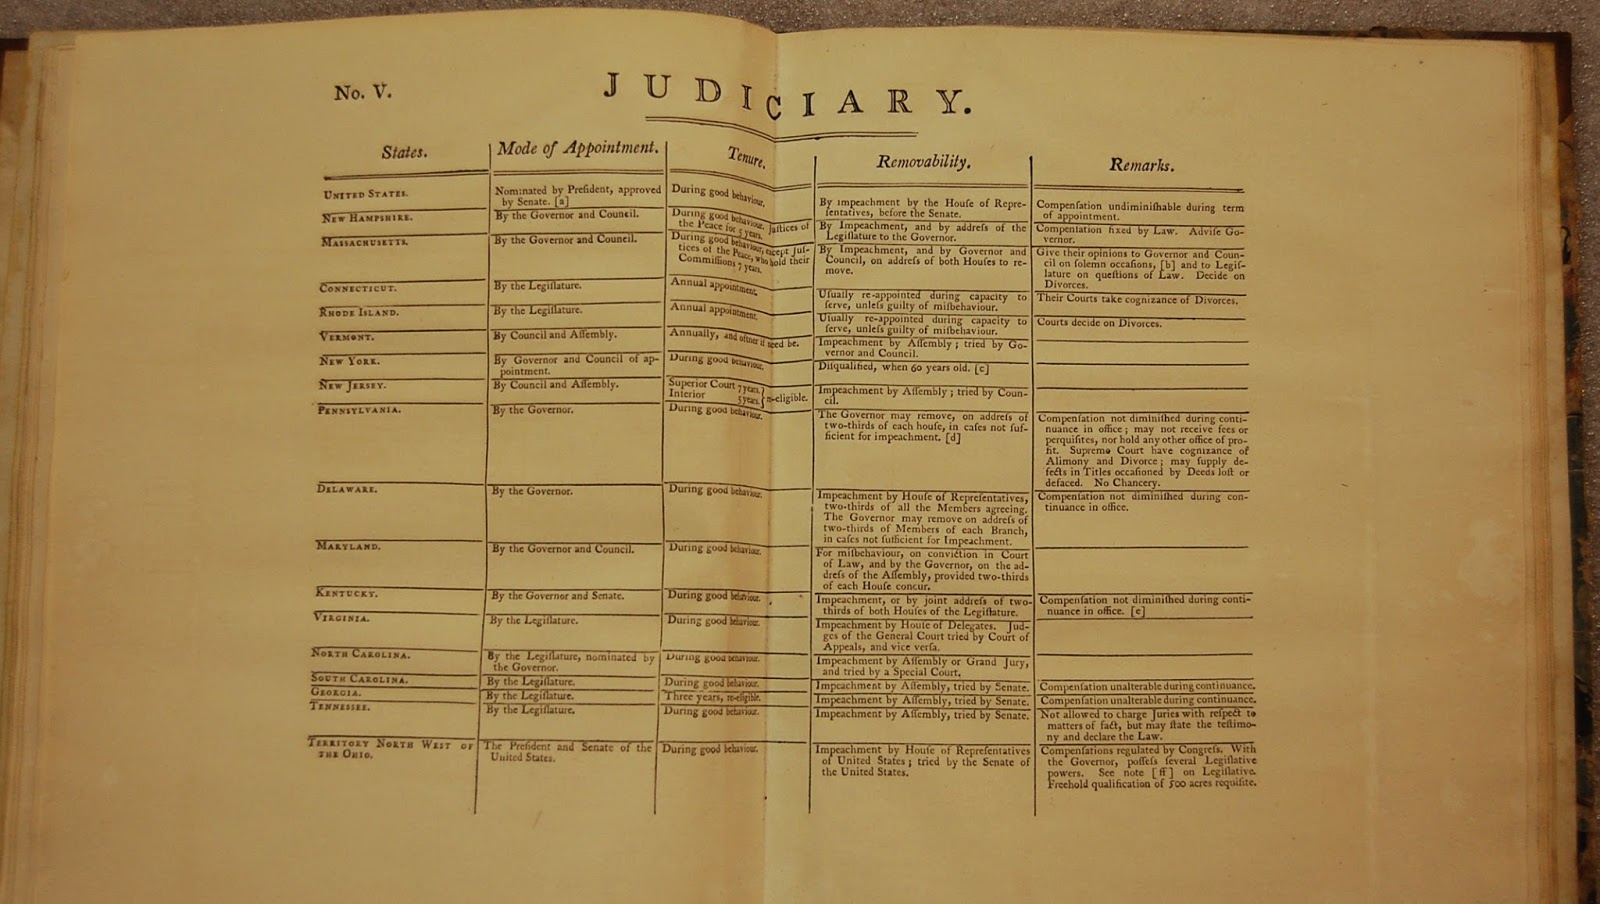 No. V.
JUDICIARY.
States.
Mode of Appointment.
Tenure.
Removability.
Remarks.
UNITED STATES.
Nominated by Preſident, approved
by Senate. [a]
During good behaviour.
By impeachment by the Houſe of Repre-
ſentatives, before the Senate.
Compenſation undiminiſhable during term
of appointment.
NEW HAMPSHIRE.
By the Governor and Council.
During good behaviour. Juſtices of
the Peace for 5 years.
By Impeachment, and by addreſs of the
Legiſlature to the Governor.
Compenſation fixed by Law. Adviſe Go-
vernor.
MASSACHUSETTS.
By the Governor and Council.
During good behaviour, except Juſ-
tices of the Peace, who hold their
Commiſſions 7 years.
By Impeachment, and by Governor and
Council, on addreſs of both Houſes to re-
move.
Give their opinions to Governor and Coun-
cil on ſolemn occaſions, [b] and to Legiſ-
lature on queſtions of Law. Decide on
Divorces.
CONNECTICUT.
By the Legiſlature.
Annual appointment.
Uſually re-appointed during capacity to
ſerve, unleſs guilty of miſbehaviour.
Their Courts take cognizance of Divorces.
RHODE ISLAND.
By the Legiſlature.
Annual appointment.
Uſually re-appointed during capacity to
ſerve, unleſs guilty of miſbehaviour.
Courts decide on Divorces.
VERMONT.
By Council and Aſſembly.
Annually, and oftner if need be.
Impeachment by Aſſembly; tried by Go-
vernor and Council.
NEW YORK.
By Governor and Council of ap-
pointment.
During good behaviour.
Diſqualified, when 60 years old. [c]
NEW JERSEY.
By Council and Aſſembly.
Superior Court 7 years, }
Interior 5 years, } re-eligible.
Impeachment by Aſſembly; tried by Coun-
cil.
PENNSYLVANIA.
By the Governor.
During good behaviour.
The Governor may remove, on addreſs of
two-thirds of each houſe, in caſes not ſuf-
ficient for impeachment. [d]
Compenſation not diminiſhed during conti-
nuance in office; may not receive fees or
perquiſites, nor hold any other office of pro-
fit. Supreme Court have cognizance of
Alimony and Divorce; may ſupply de-
fects in Titles occaſioned by Deeds loſt or
defaced. No Chancery.
DELAWARE.
By the Governor.
During good behaviour.
Impeachment by Houſe of Repreſentatives,
two-thirds of all the Members agreeing.
The Governor may remove on addreſs of
two-thirds of Members of each Branch,
in caſes not ſufficient for Impeachment.
Compenſation not diminiſhed during con-
tinuance in office.
MARYLAND.
By the Governor and Council.
During good behaviour.
For miſbehaviour, on conviction in Court
of Law, and by the Governor, on the ad-
dreſs of the Aſſembly, provided two-thirds
of each Houſe concur.
KENTUCKY.
By the Governor and Senate.
During good behaviour.
Impeachment, or by joint addreſs of two-
thirds of both Houſes of the Legiſlature.
Compenſation not diminiſhed during conti-
nuance in office. [e]
VIRGINIA.
By the Legiſlature.
During good behaviour.
Impeachment by Houſe of Delegates. Jud-
ges of the General Court tried by Court of
Appeals, and vice verſa.
NORTH CAROLINA.
By the Legiſlature, nominated by
the Governor.
During good behaviour.
Impeachment by Aſſembly or Grand Jury,
and tried by a Special Court.
SOUTH CAROLINA.
By the Legiſlature.
During good behaviour.
Impeachment by Aſſembly, tried by Senate.
Compenſation unalterable during continuance.
GEORGIA.
By the Legiſlature.
Three years, re-eligible.
Impeachment by Aſſembly, tried by Senate.
Compenſation unalterable during continuance.
TENNESSEE.
By the Legiſlature.
During good behaviour.
Impeachment by Aſſembly, tried by Senate.
Not allowed to charge Juries with reſpect to
matters of fact, but may ſtate the teſtimo-
ny and declare the Law.
TERRITORY NORTH WEST OF
THE OHIO.
The Preſident and Senate of the
United States.
During good behaviour.
Impeachment by Houſe of Repreſentatives
of United States; tried by the Senate of
the United States.
Compenſations regulated by Congreſs. With
the Governor, poſſeſs ſeveral Legiſlative
powers. See note [ff] on Legiſlative.
Freehold qualification of 500 acres requiſite.